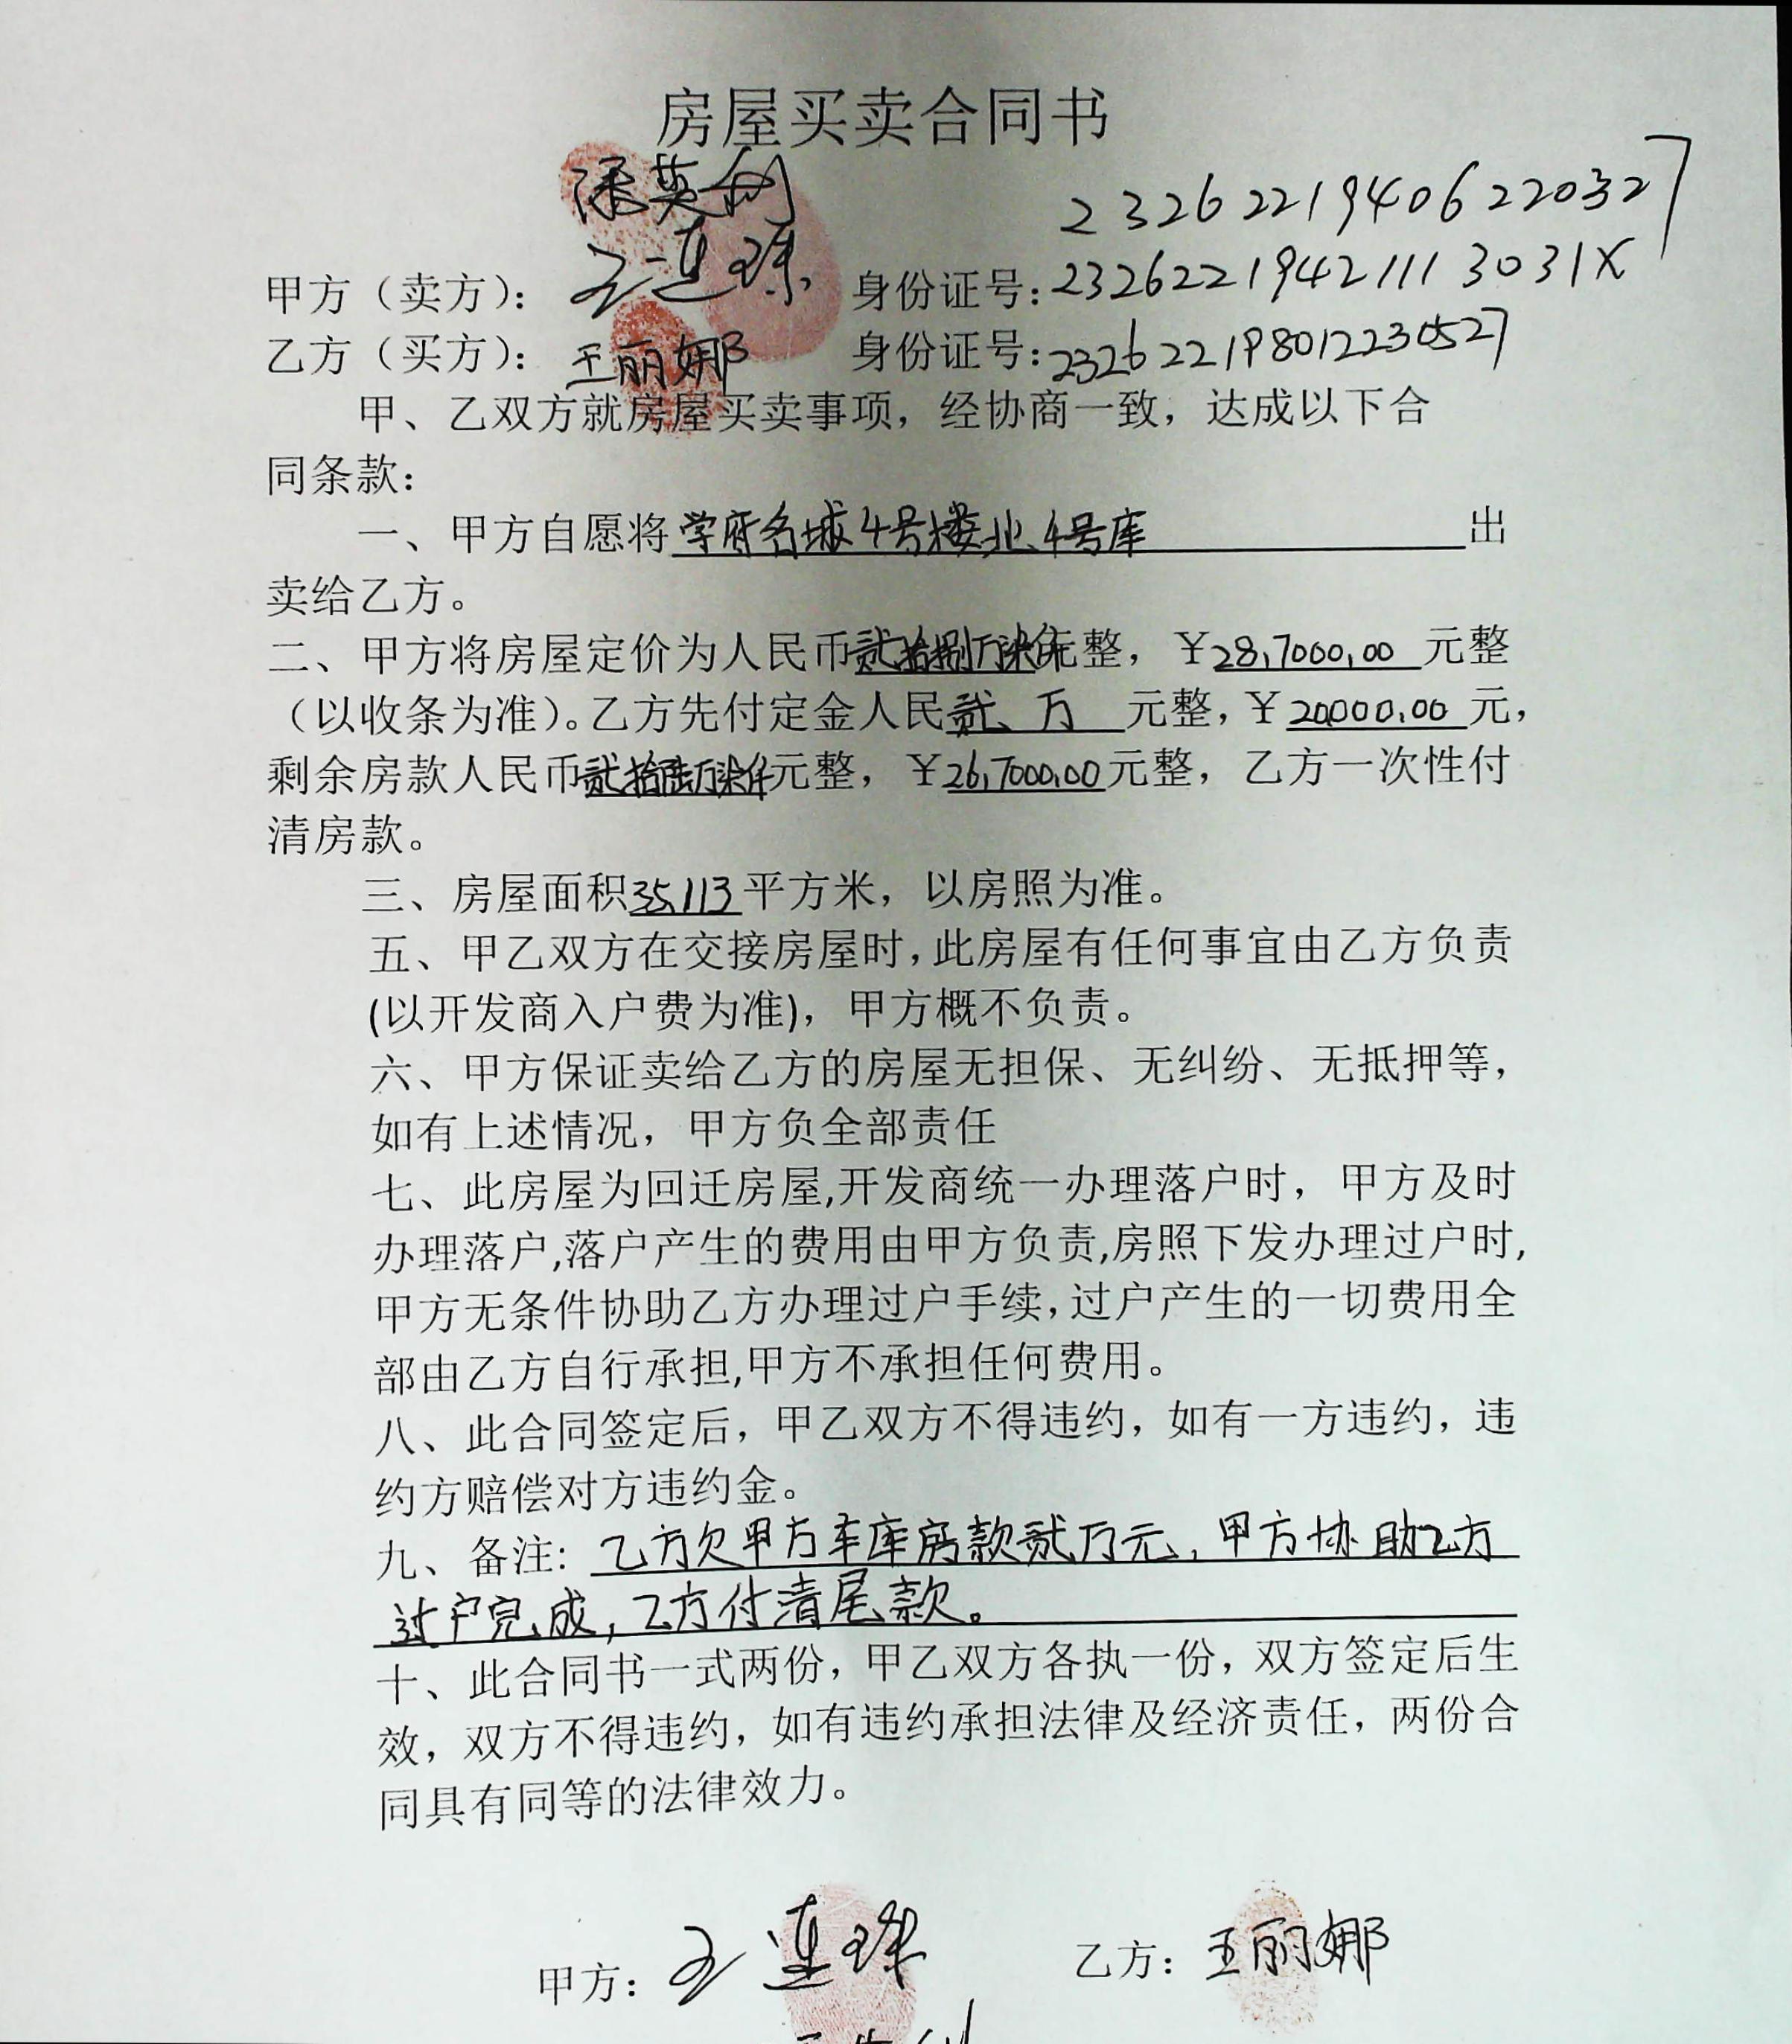 房屋买卖合同书
英 23262219406220327
甲方（卖方）：王连珠 身份证号：23262219421113031X
乙方（买方）：王丽娜 身份证号：232622198012230527
甲、乙双方就房屋买卖事项，经协商一致，达成以下合
同条款：
一、甲方自愿将学府名城4号楼北4号库出
卖给乙方。
二、甲方将房屋定价为人民币贰拾捌万柒仟元整，￥28,7000.00元整
（以收条为准）。乙方先付定金人民贰万元整，￥20000.00元，
剩余房款人民币贰拾陆万柒仟元整，￥26,7000.00元整，乙方一次性付
清房款。
三、房屋面积35.113平方米，以房照为准。
五、甲乙双方在交接房屋时，此房屋有任何事宜由乙方负责
(以开发商入户费为准)，甲方概不负责。
六、甲方保证卖给乙方的房屋无担保、无纠纷、无抵押等，
如有上述情况，甲方负全部责任
七、此房屋为回迁房屋,开发商统一办理落户时，甲方及时
办理落户,落户产生的费用由甲方负责,房照下发办理过户时,
甲方无条件协助乙方办理过户手续，过户产生的一切费用全
部由乙方自行承担,甲方不承担任何费用。
八、此合同签定后，甲乙双方不得违约，如有一方违约，违
约方赔偿对方违约金。
九、备注：乙方欠甲方车库房款贰万元，甲方协助乙方
过户完成，乙方付清尾款。
十、此合同书一式两份，甲乙双方各执一份，双方签定后生
效，双方不得违约，如有违约承担法律及经济责任，两份合
同具有同等的法律效力。
甲方：王连珠 乙方：王丽娜